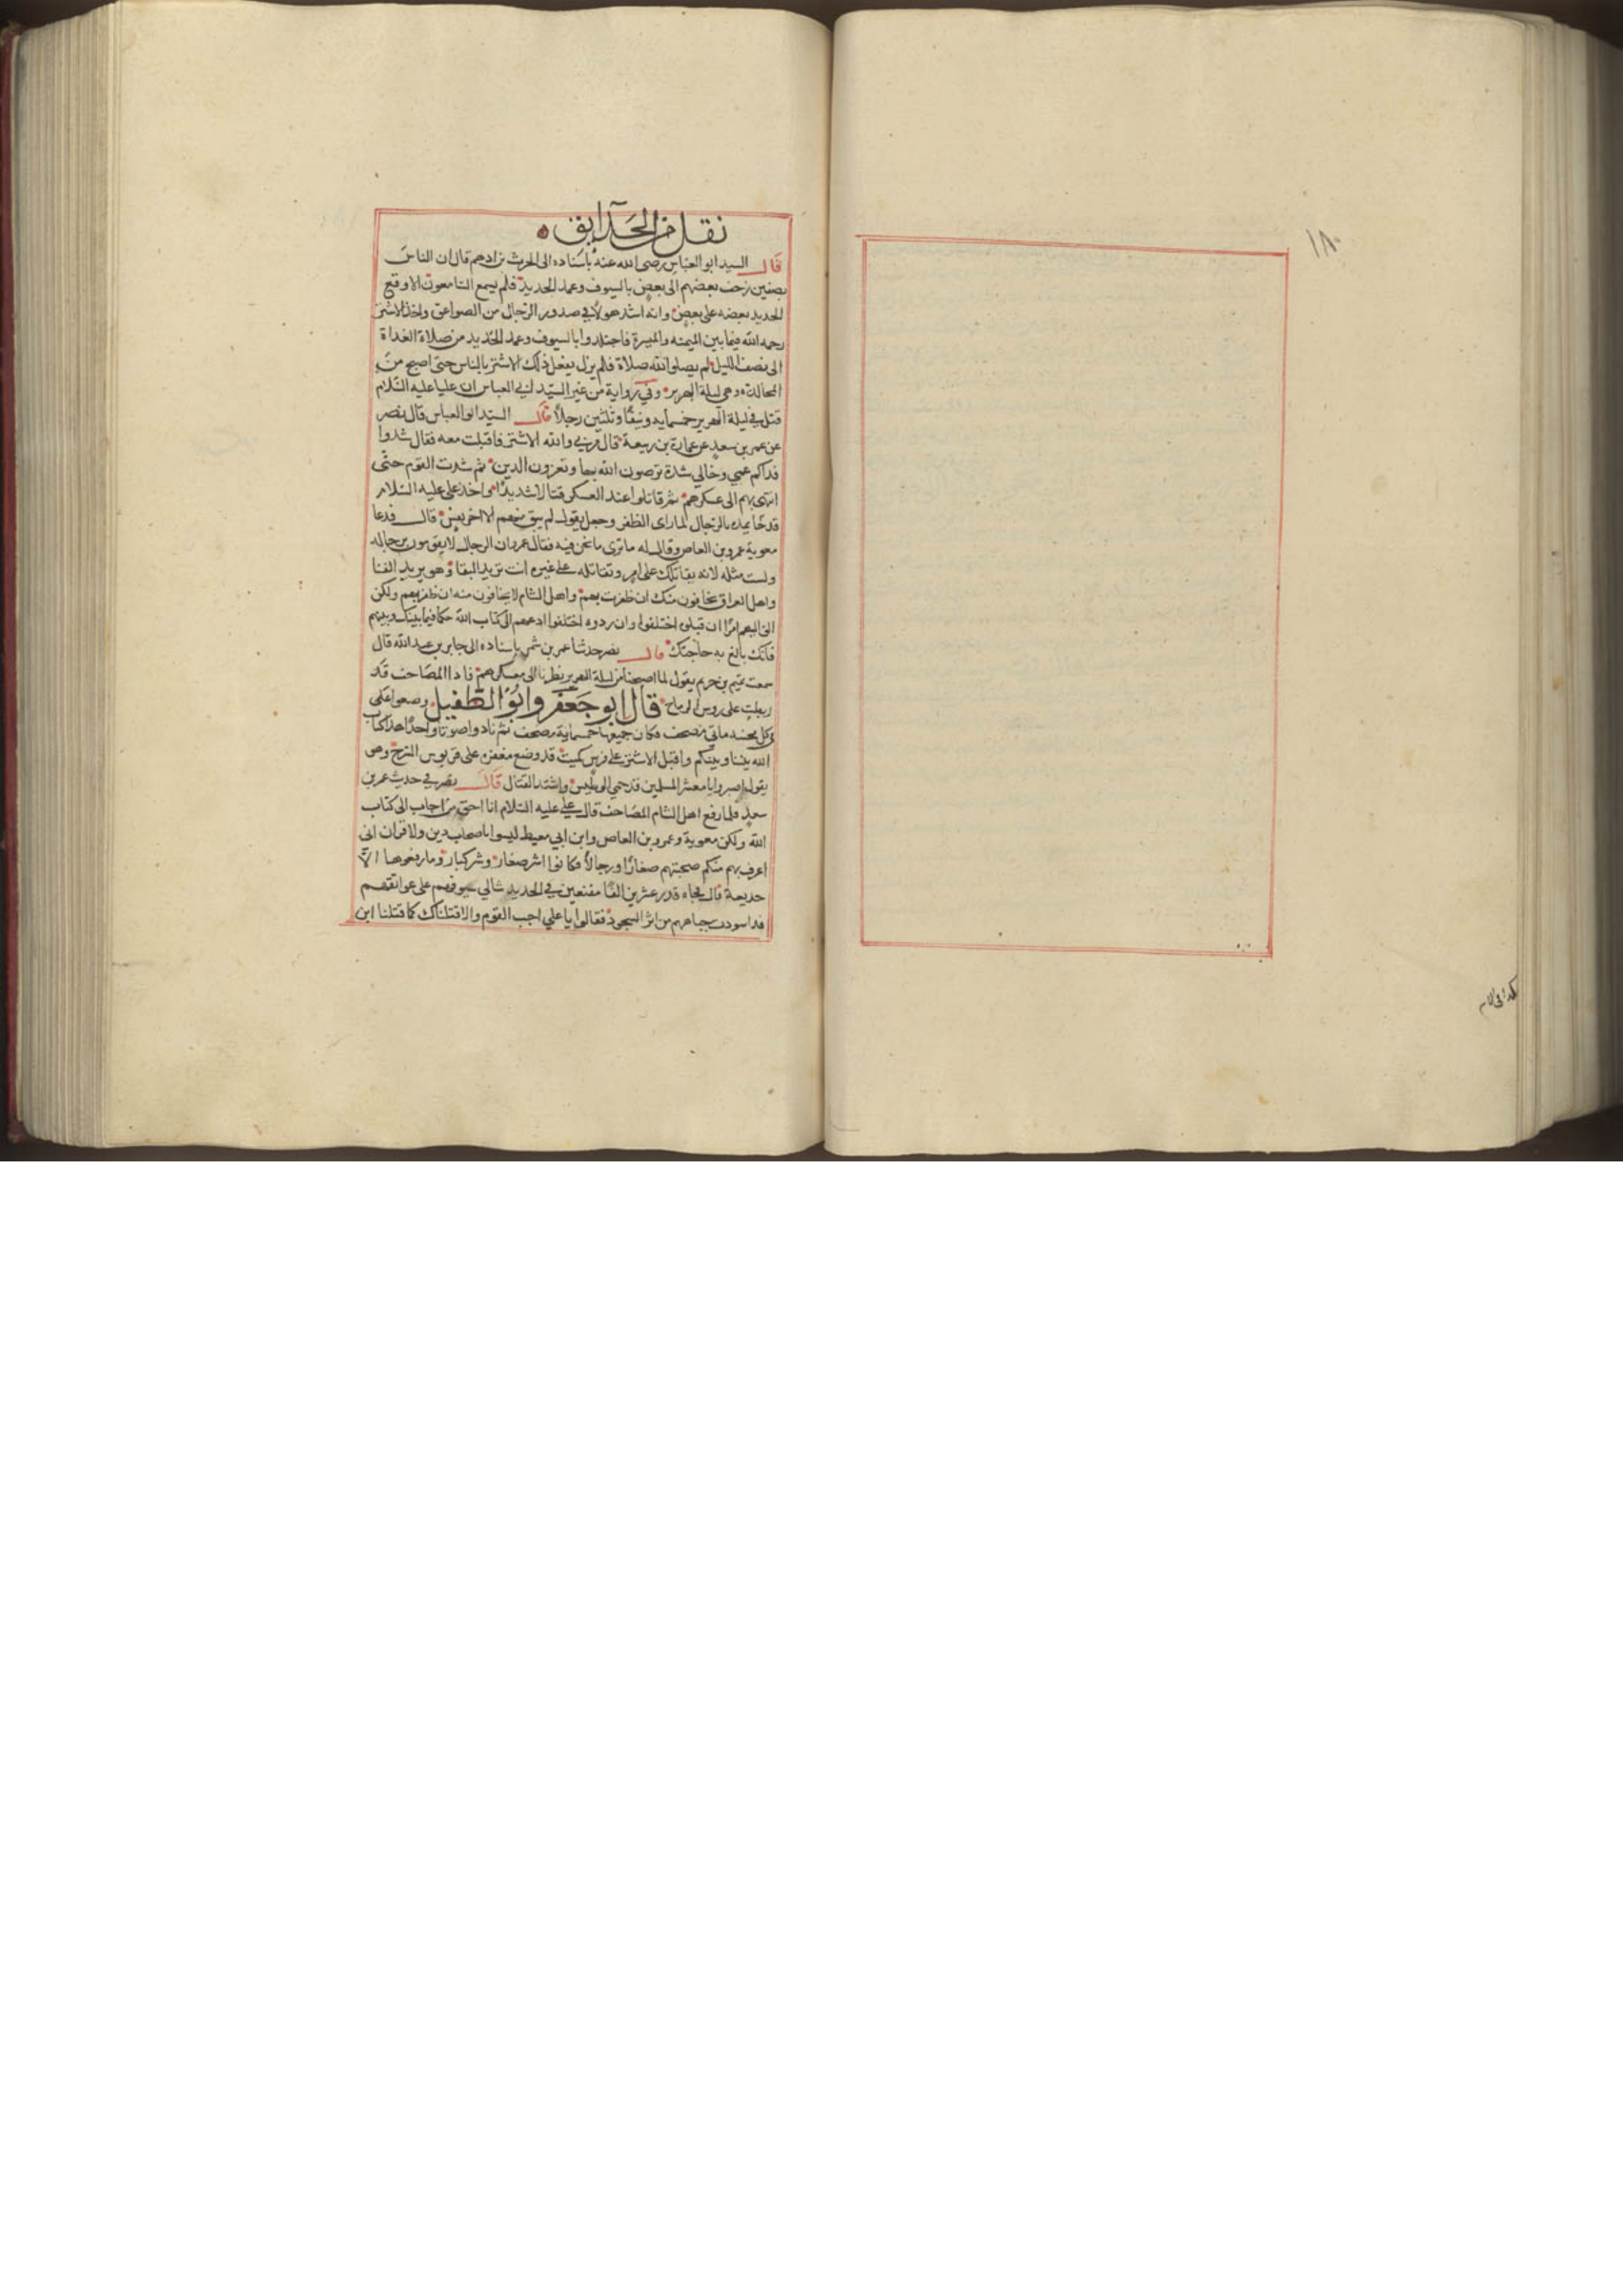 ١٨٠
كذا في الام
نقل من الحدآيق ه
قال السيد ابو العباس رضي الله عنه باسناده الى الحرث بن ادهم قال ان الناس
بصفين زحف بعضهم الى بعض بالسيوف وعمد الحديد فلم يسمع السامعون الا وقع
الحديد بعضه على بعض وانه اشد هولا في صدور الرجال من الصواعق واخذ الاشتر
رحمه الله فيما بين الميمنه والميسرة فاجتلدوا بالسيوف وعمد الحديد من صلاة الغداة
الى نصف الليل لم يصلوا لله صلاة فلم يزل يفعل ذلك الاشتر بالناس حتى اصبح من
المحاله وهي ليلة الهرير وفي رواية من غير السيد ابي العباس ان عليا عليه السلام
قتل في ليلة الهرير خمسمايه ونيفا وثلثين رجلا قال السيد ابو العباس قال نصر
عن عمر بن سعد عن عمارة بن ربيعة قال مر بي والله الاشتر فاقبلت معه فقال شدوا
فداكم عمي وخالي شدة ترضون الله بها وتعزون الدين ثم شدت القوم حتى
انتهى بهم الى عسكرهم ثم قاتلوا عند العسكر قتالا شديدا واخذ علي عليه السلام
يمده بالرجال لما راى الظفر وجعل يقول لم يبق منهم الا اخر نفس قال فدعا
معوية عمرو بن العاص وقال له ما ترى ما نحن فيه فقال عمرو ان الرجال لا يقومون برجاله
ولست مثله لانه يقاتلك على امر وتقاتله على غيره انت تريد البقا وهو يريد الفنا
واهل العراق يخافون منك ان ظفرت بهم واهل الشام لا يخافون منه ان ظفر بهم ولكن
الق اليهم امرا ان قبلوه اختلفوا وان ردوه اختلفوا ادعهم الى كتاب الله حكما فيما بينك وبينهم
فانك بالغ به حاجتك قال نصر حدثنا عمر بن شمر باسناده الى جابر بن عبد الله قال
سمعت تميم بن خريم يقول لما اصبحنا من ليلة الهرير نظرنا الى معسكرهم فاذا المصاحف قد
ربطت على روس الرماح قال ابو جعفر وابو الطفيل وضعوا على
كل مجنبه مايتي مصحف فكان جميعها خمسماية مصحف ثم نادوا صوتا واحدا هذا كتاب
الله بيننا وبينكم واقبل الاشتر على فرس كميت قد وضع مغفره على قربوس السرج وهو
يقول اصبروا يا معشر المسلمين قد حمي الوطيس واشتد القتال قال نصر في حديث عمر بن
سعد فلما رفع اهل الشام المصاحف قال علي عليه السلام انا احق من اجاب الى كتاب
الله ولكن معوية وعمرو بن العاص وابن ابي معيط ليسوا باصحاب دين ولا قران اني
اعرف بهم منكم صحبتهم صغارا ورجالا فكانوا اشر صغار وشر كبار وما رفعوها الا
خديعة قال فجاه قدر عشرين الفا مقنعين في الحديد شالي سيوفهم على عواتقهم
قد اسودت جباههم من اثر السجود فقالوا يا علي اجب القوم والا قتلناك كما قتلنا ابن